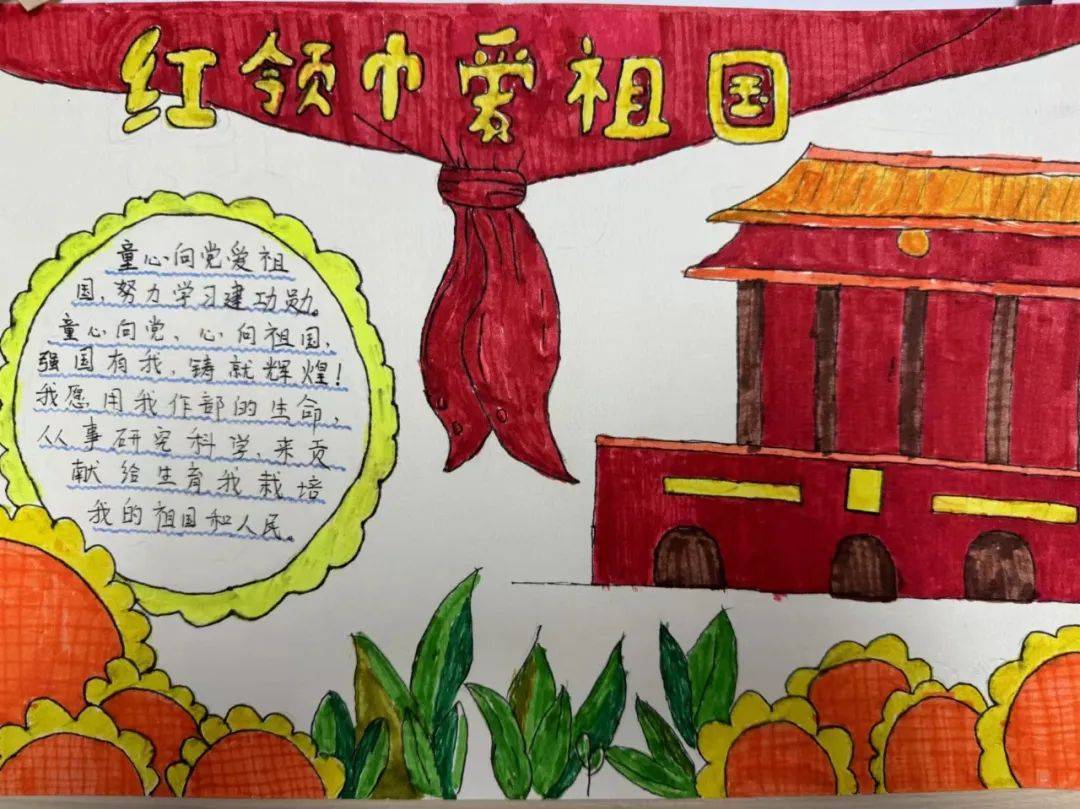 红领巾爱祖国
童心向党爱祖
国，努力学习建功勋。
童心向党，心向祖国，
强国有我，铸就辉煌！
我愿用我作部的生命，
从事研究科学，来贡
献给生育我栽培
我的祖国和人民。